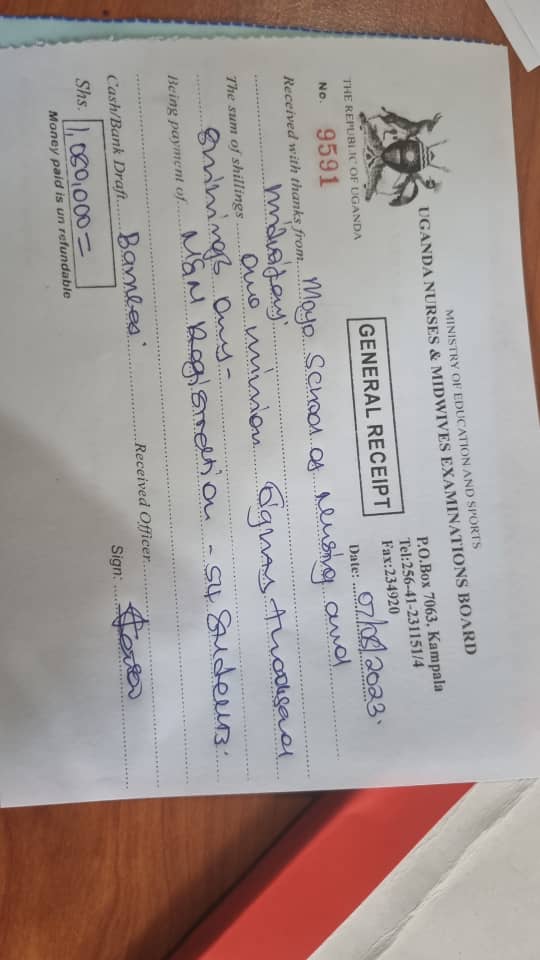 MINISTRY OF EDUCATION AND SPORTS
UGANDA NURSES & MIDWIVES EXAMINATIONS BOARD
P.O.Box 7063, Kampala
Tel:256-41-231151/4
Fax:234920
THE REPUBLIC OF UGANDA
GENERAL RECEIPT
No. 9591
Date: 07/08/2023.
Received with thanks from Moyo School of Nursing and
Midwifery
The sum of shillings one million Eighty thousand
shillings only-
Being payment of NSN Registration - 54 Students.
Cash/Bank Draft
Received Officer
Shs. 1,080,000=
Sign:
Money paid is un refundable